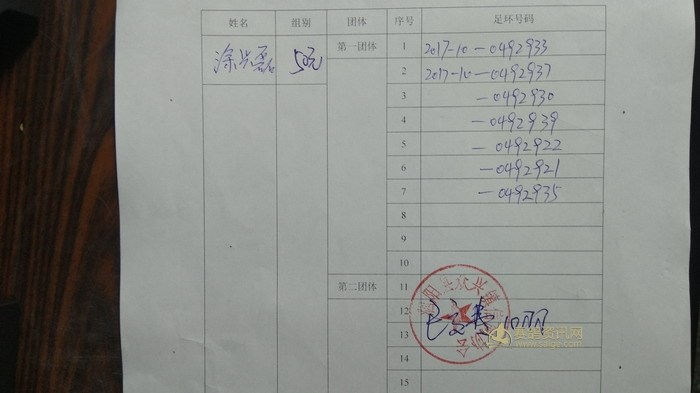 姓名 组别 团体 序号 足环号码
涂兴磊 50元 第一团体 1 2017-10-0492933
2 2017-10-0492937
3 -0492930
4 -0492939
5 -0492922
6 -0492921
7 -0492935
8
9
10
第二团体 11
12
13
14
15
赛鸽资讯网